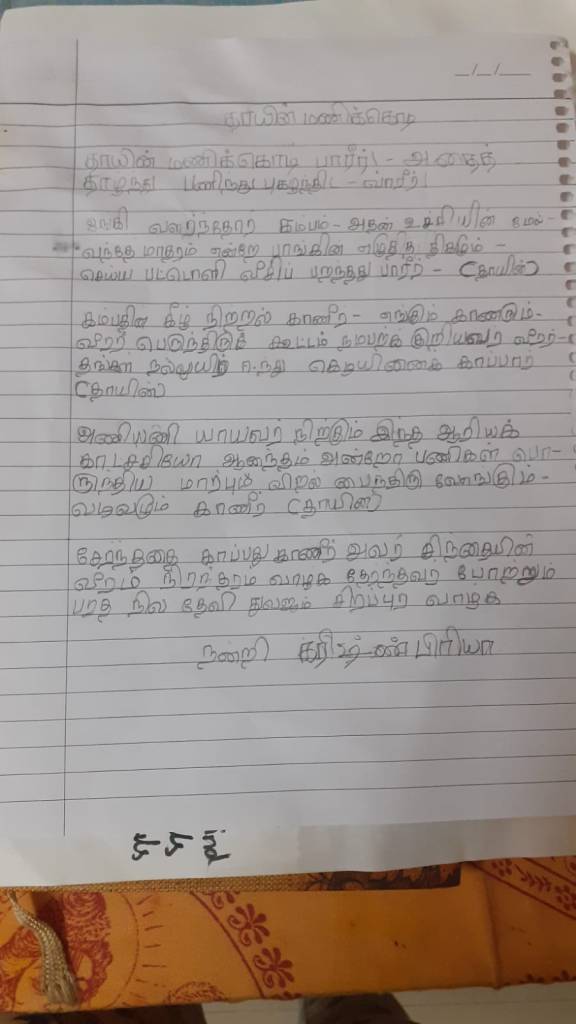 தாயின் மணிக்கொடி
தாயின் மணிக்கொடி பாரீர்! - அதைத்
தாழ்ந்து பணிந்து புகழ்ந்திட - வாரீர்!
ஓங்கி வளர்ந்தோர் கம்பம் - அதன் உச்சியின் மேல் -
வந்தே மாதரம் என்றே பாங்கின் எழுதித் திகழும் -
செய்ய பட்டொளி வீசிப் பறந்தது பாரீர் - (தாயின்)
கம்பதின் கீழ் நிற்றல் காணீர் - எங்கும் காணடும்-
வீரர் பெருந்திருக் கூட்டம் நம்பற்க் குரியவர் வீரர்-
தங்கள் நல்லுயிர் ஈந்து கொடியினைக் காப்பார்
(தாயின்)
அணியணி யாயவர் நிற்கும் இந்த ஆரியக்
காட்சியோ ஆனந்தம் அன்றோ பணிகள் பொ-
ருந்திய மார்பும் விறல் பைந்திரு வோங்கும்-
வடிவமும் காணீர் (தாயின்)
சேர்ந்ததை காப்பது காணீர் அவர் சிந்தையின்
வீரம் நிரந்தரம் வாழ்க தேர்ந்தவர் போற்றும்
பரத நில தேவி துவஜம் சிறப்புற வாழ்க
நன்றி